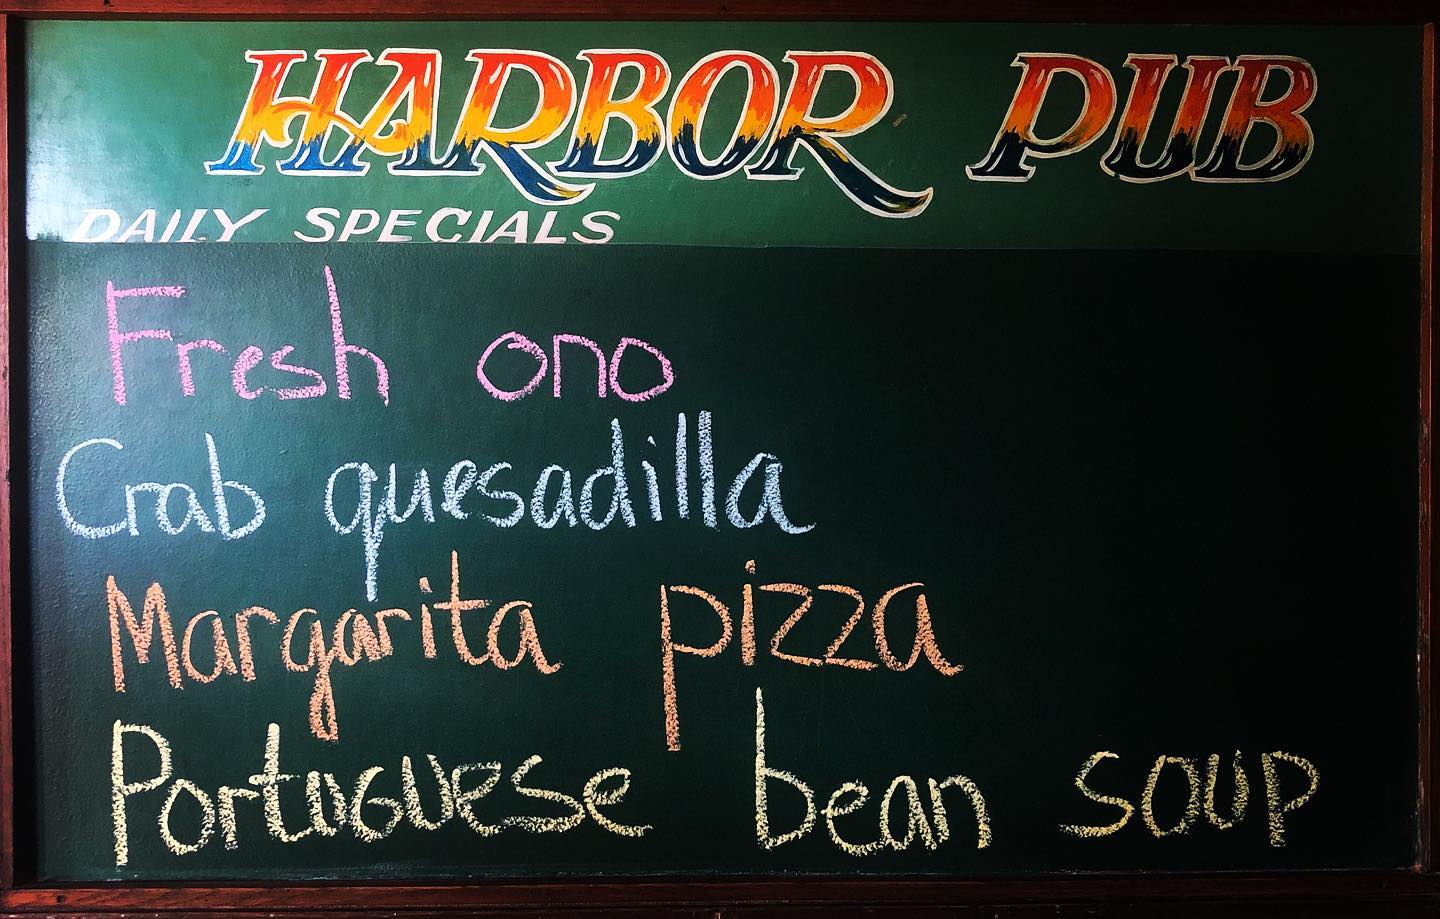 HARBOR PUB
DAILY SPECIALS
Fresh ono
Crab quesadilla
Margarita pizza
Portuguese bean soup